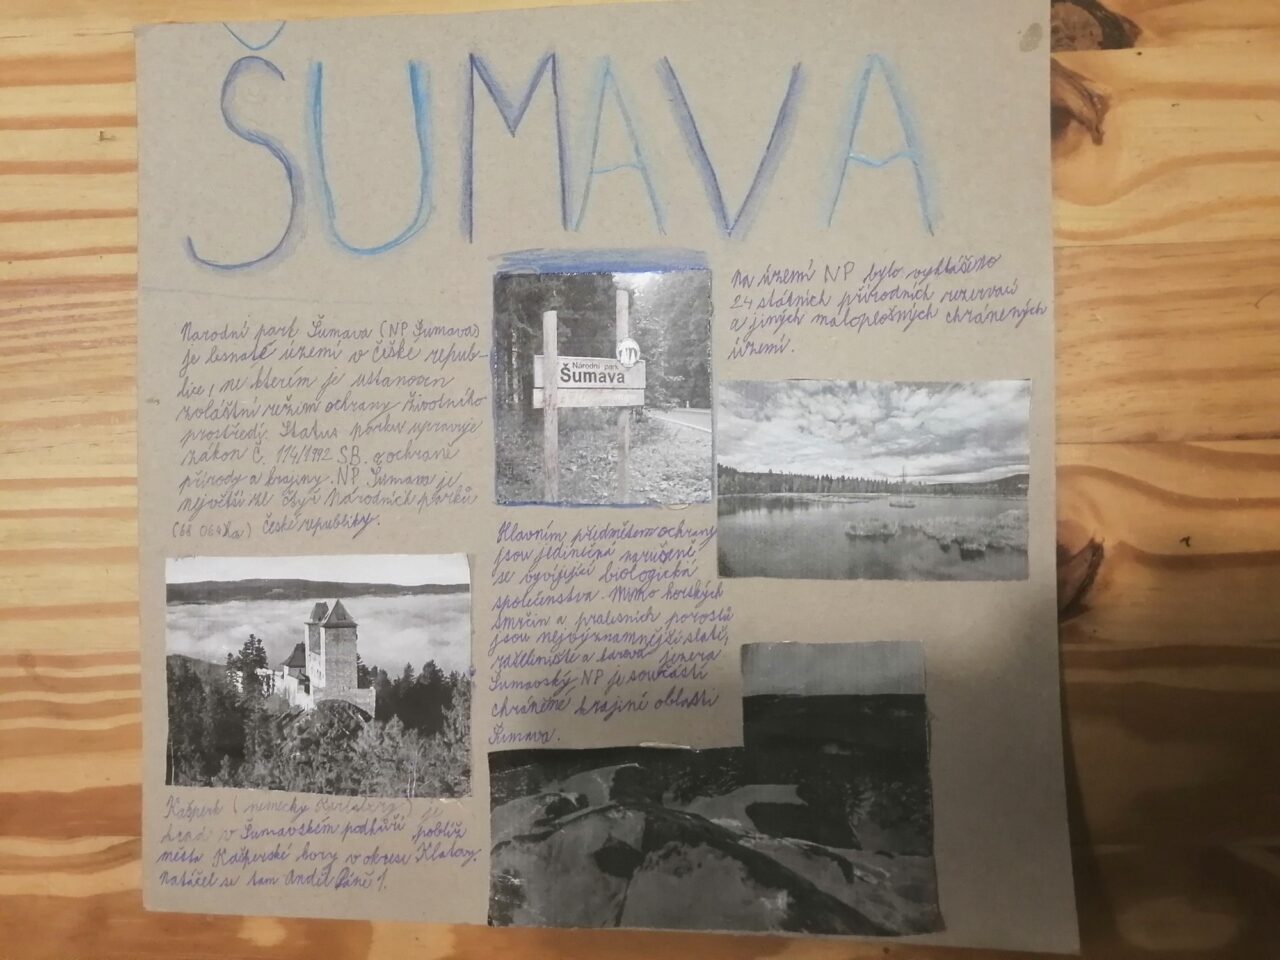 ŠUMAVA
Národní park Šumava (NP Šumava)
je lesnaté území v České repub-
lice, ne kterém je ustanoven
zvláštní režim ochrany životního
prostředí. Status parku upravuje
zákon č. 114/1992 SB. o ochraně
přírody a krajiny. NP Šumava je
největší ze čtyř Národních parků
(68 064ha) České republiky.
Národní park
Šumava
Na území NP bylo vyhlášeno
24 státních přírodních rezervací
a jiných maloplošných chráněných
území.
Hlavním předmětem ochrany
jsou jedinečná narušeně
se vyvíjející biologická
společenstva. Mimo horských
smrčin a pralesních porostů
jsou nejvýznamnější slatě,
rašeliniště a karová jezera
Šumavský NP je součástí
chráněné krajiné oblasti
Šumava.
Kašperk (německy Karlsberg) je
hrad v Šumavském podhůří poblíž
města Kašperské hory v okrese Klatovy.
Natáčel se tam Anděl Páně 1.